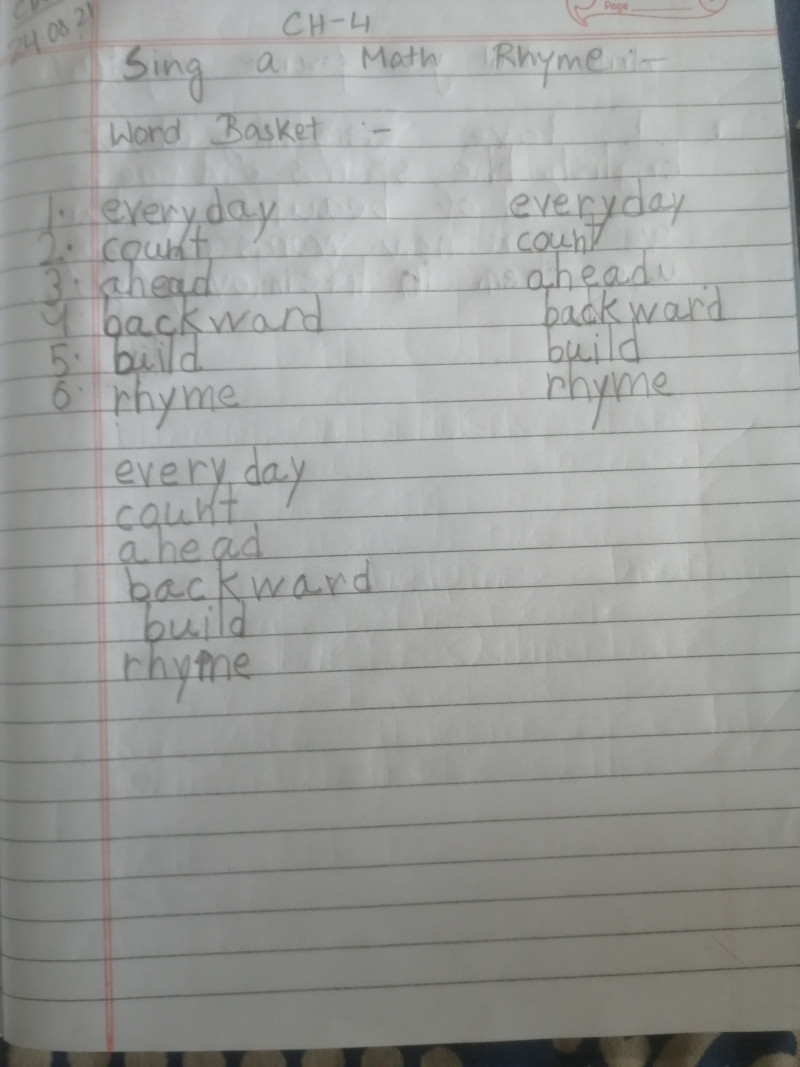 CH-4
Page
24 08 21
Sing a Math Rhyme :-
Word Basket :-
1. everyday everyday
2. count count
3. ahead ahead
4 backward backward
5. build build
6. rhyme rhyme
every day
count
ahead
backward
build
rhyme